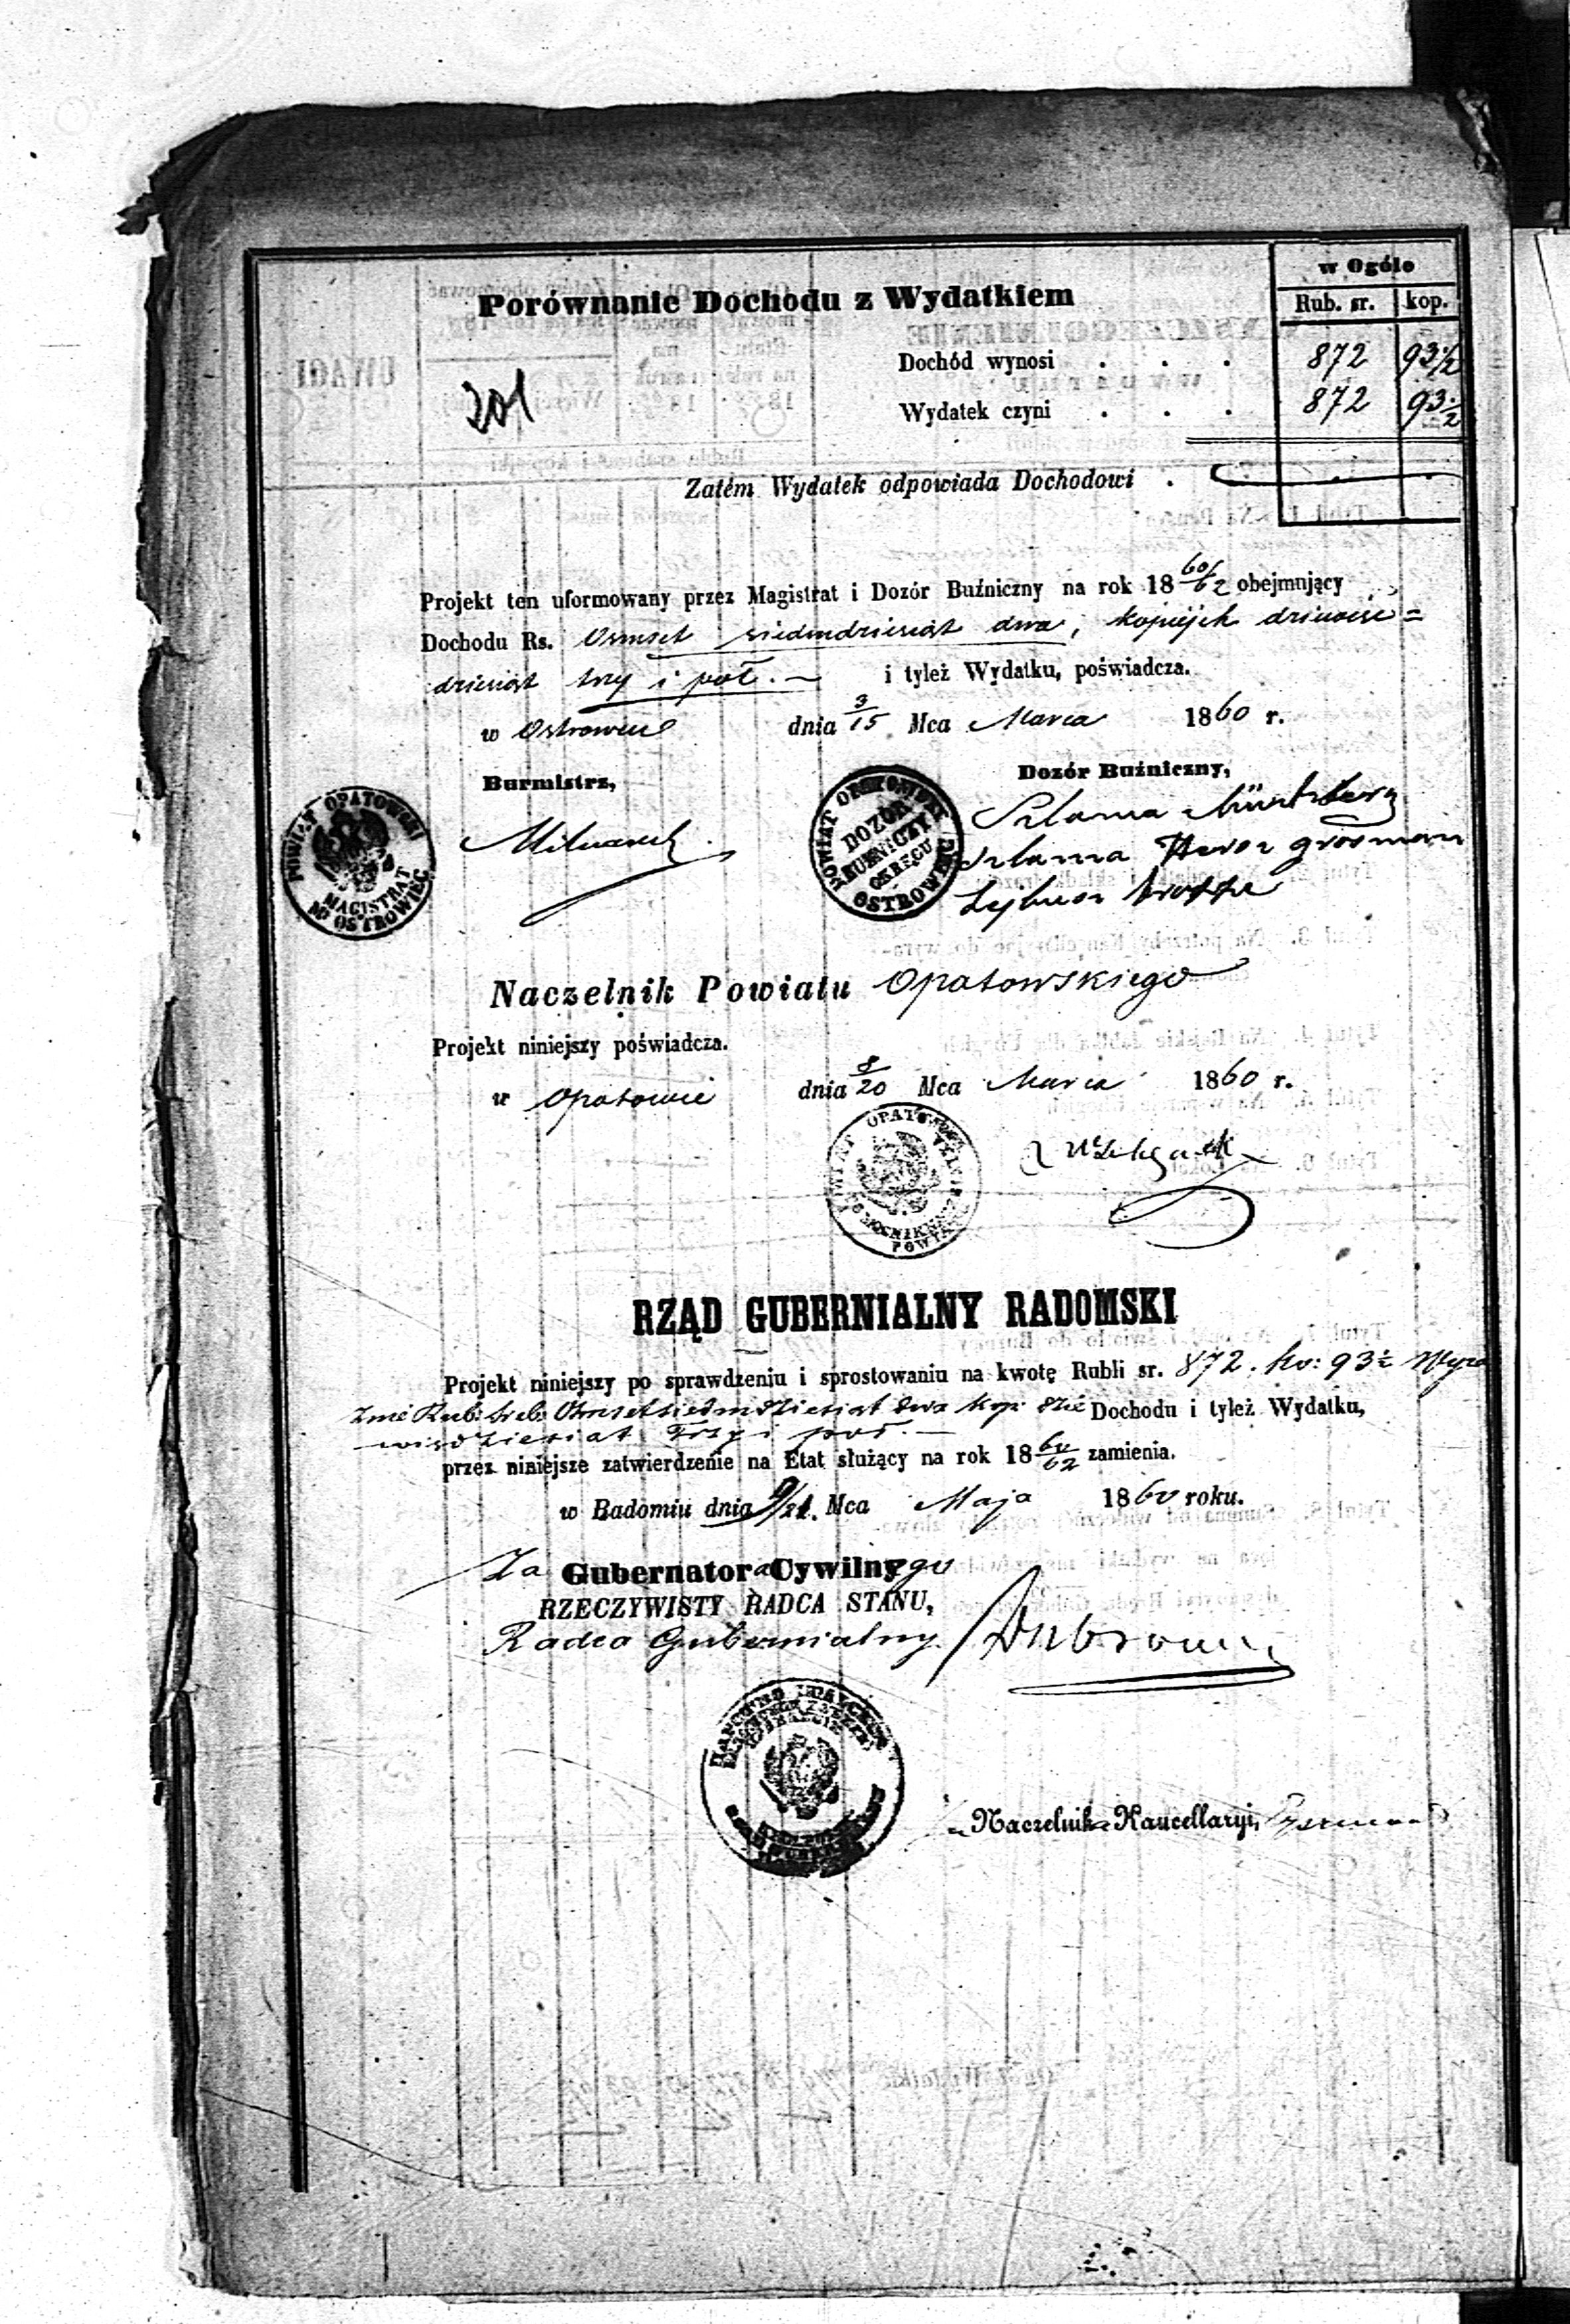 w Ogóle
Porównanie Dochodu z Wydatkiem
Rub. sr. kop.
Dochód wynosi . . . 872 93 1/2
201
Wydatek czyni . . . 872 93 1/2
Zatém Wydatek odpowiada Dochodowi .
Projekt ten uformowany przez Magistrat i Dozór Buźniczny na rok 18 60/62 obejmujący
Dochodu Rs. Osmset siedmdziesiąt dwa, kopiejek dziewięć=
dziesiąt trzy i poł. — i tyleż Wydatku, poświadcza.
w Ostrowcu dnia 3/15 Mca Marca 1860 r.
Burmistrz, Dozór Buźniczny,
POWIAT OPATOWSKI MAGISTRAT M. OSTROWIEC
POWIAT OPATOWSKI DOZÓR BUZNICZY OKRĘGU OSTROWIEC
Szlama
Szlama Hersz Grosman
Naczelnik Powiatu Opatowskiego
Projekt niniejszy poświadcza.
w Opatowie dnia 8/20 Mca Marca 1860 r.
RZĄD GUBERNIALNY RADOMSKI
Projekt niniejszy po sprawdzeniu i sprostowaniu na kwotę Rubli sr. 872. ko: 93 1/2 Wyra
źnie Rub: Sreb: Ośmsetsiedmdziesiąt dwa kop: dzie Dochodu i tyleż Wydatku,
więdziesiąt Trzy i poł. —
przez niniejsze zatwierdzenie na Etat służący na rok 18 60/62 zamienia.
w Radomiu dnia 9/21. Mca Maja 1860 roku.
Za Gubernatora Cywilnygo
RZECZYWISTY RADCA STANU,
Radca Gubernialny
Naczelnika Kancellaryi,